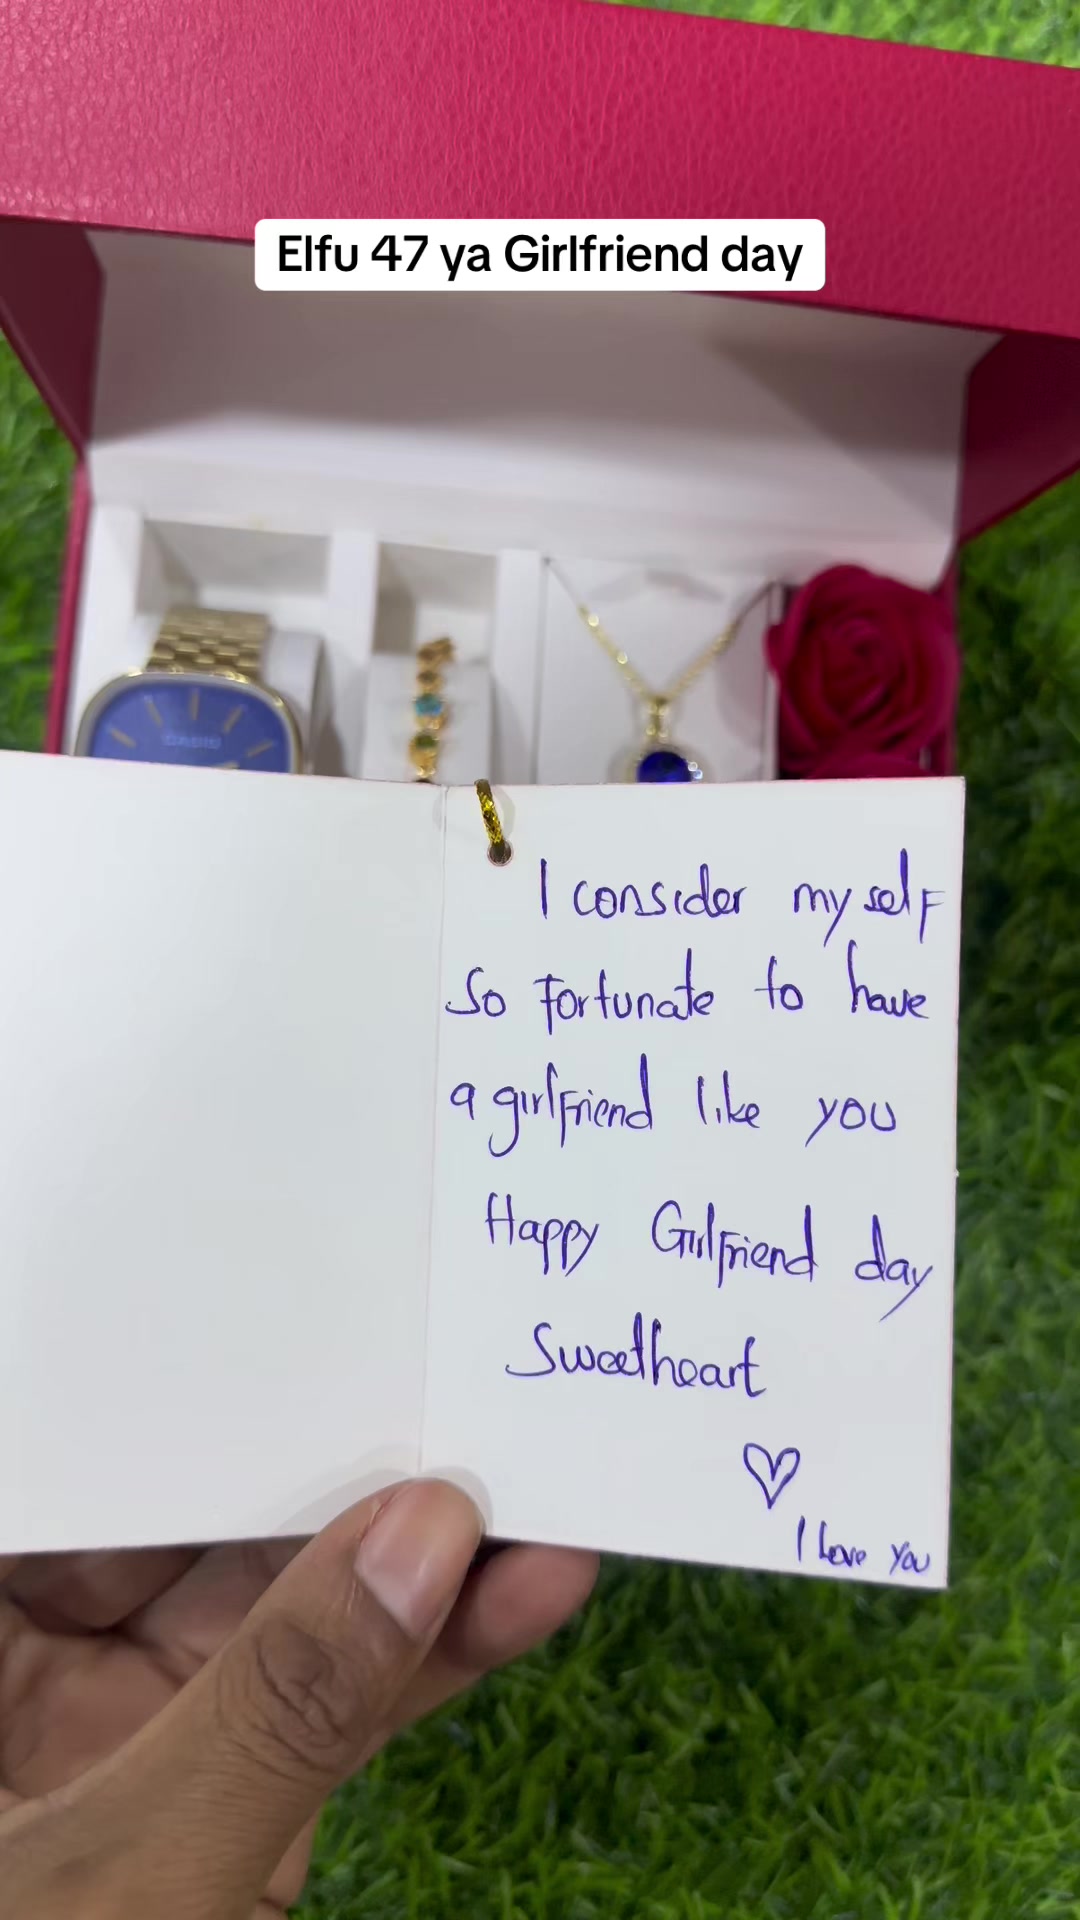 Elfu 47 ya Girlfriend day
CASIO
I consider my self
so fortunate to have
a girlfriend like you
Happy Girlfriend day
Sweetheart
I Love You